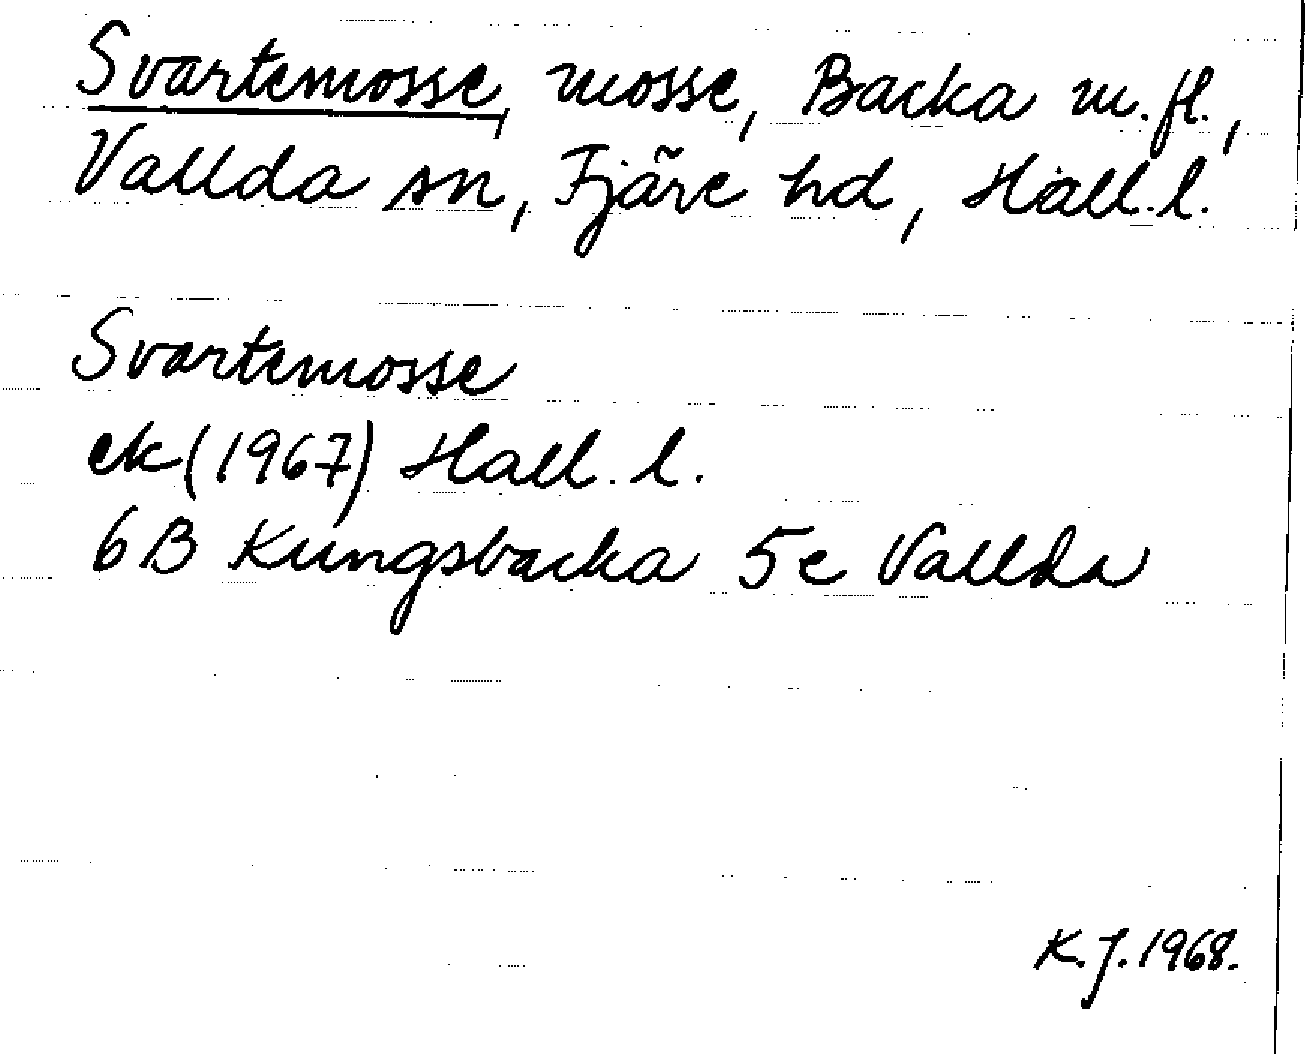 Svartemosse, mosse, Backa m.fl.,
Vallda sn, Fjäre hd, Hall.l.
Svartemosse
ek (1967) Hall. l.
6B Kungsbacka 5e Vallda
K.J. 1968.